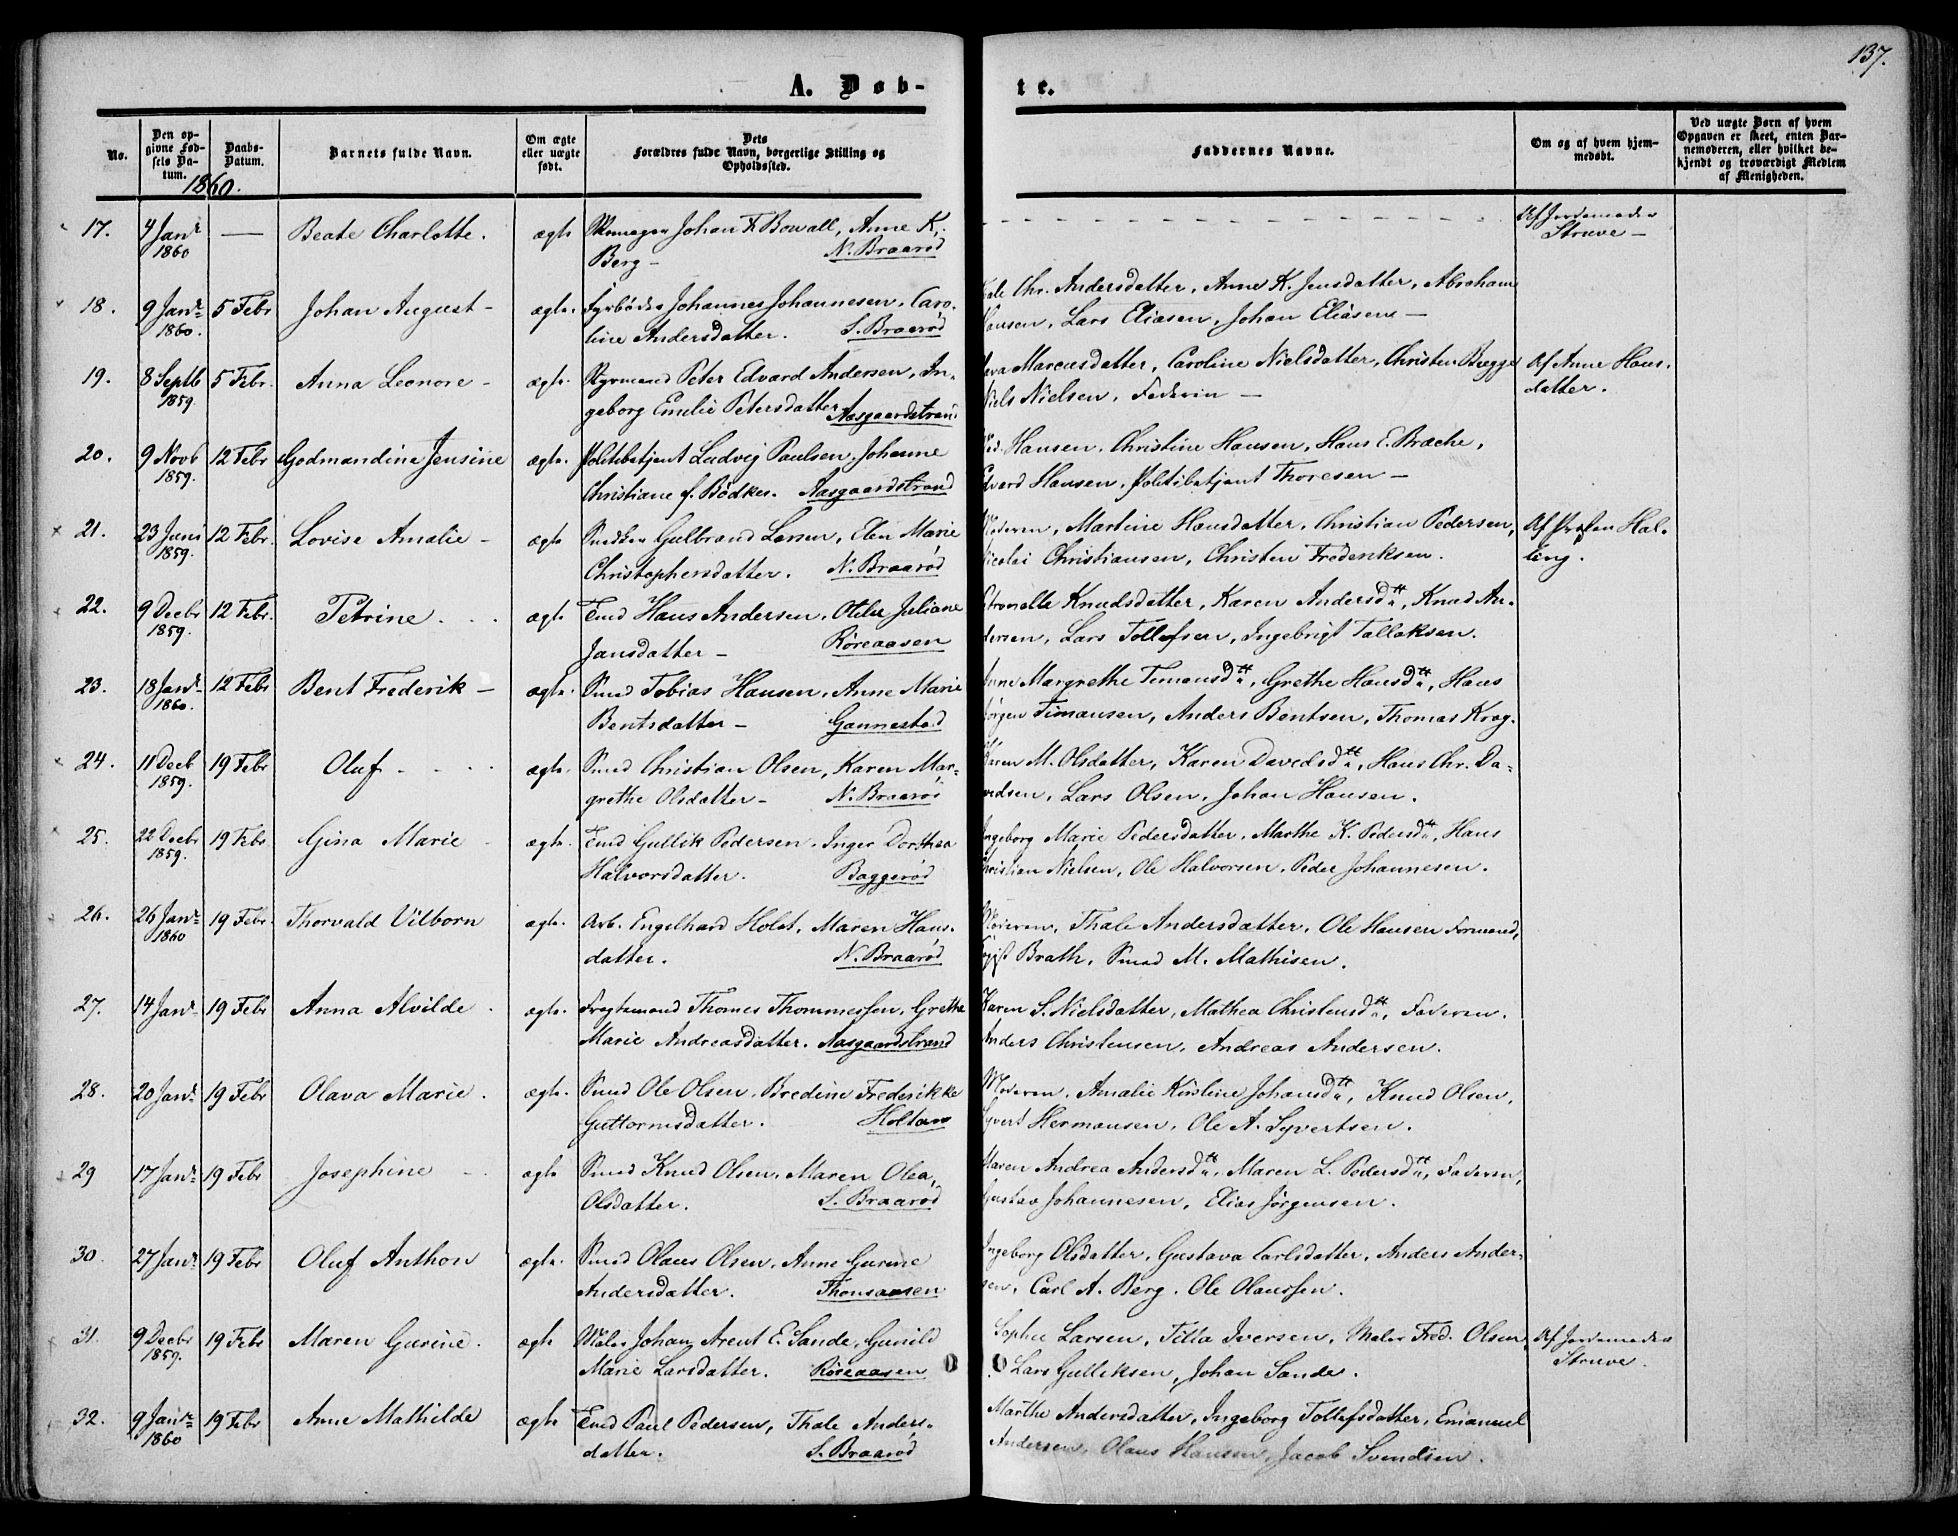 137.
A. Døb-
te.
No.
Den op-
givne Fød-
sels Da-
tum.
Daabs-
Datum.
Barnets fulde Navn.
Om ægte
eller uægte
født.
Dets
Forældres fulde Navn, borgerlige Stilling og
Opholdssted.
Faddernes Navne.
Om og af hvem hjem-
medøbt.
Ved uægte Børn af hvem
Opgaven er skeet, enten Bar-
nemoderen, eller hvilket be-
kjendt og troværdigt Medlem
af Menigheden.
1860.
17. 4 Janr — Beate Charlotte. ægte Johan F Bowall, Anne K. Af Jordemoder
1860 Berg — N. Braarød Struve —
18. 9 Janr 5 Febr Johan August — ægte. Fyrbøder Johannes Johannesen, Caro- Chr. Andersdatter, Anne K. Jensdatter, Abraham
1860. line Andersdatter. S. Braarød Hansen, Lars Eliasen, Johan Eliasen —
19. 8 Septb 5 Febr. Anna Leonore — ægte. Styrmand Peter Edvard Andersen, In- Marcusdatter, Caroline Nielsdatter, Christen Bugge Af Anne Hans-
1859. geborg Emilie Petersdatter Aasgaardstrand Niels Nielsen, Faderen — datter.
20. 9 Novb 12 Febr Godmandine Jensine ægte. Politibetjent Ludvig Paulsen, Johanne Hansen, Christine Hansen, Hans E. Brache,
1859. Christiane f. Bødker. Aasgaardstrand Edvard Hansen, Politibetjent Thoresen —
21. 23 Juni 12 Febr. Lovise Amalie — ægte Snedker Gulbrand Larsen, Elen Marie Moderen, Martine Hansdatter, Christian Pedersen, Af Hal-
1859. Christophersdatter. N. Braarød Nicolai Christiansen, Christen Frederiksen. ling.
22. 9 Decbr 12 Febr. Petrine. ægte Hans Andersen, Otilie Juliane Petronelle Knudsdatter, Karen Andersdtt, Knud An-
1859. Jansdatter — Røreaasen dersen, Lars Tollefsen, Ingebrigt Tallaksen.
23. 18 Janr 12 Febr Bent Frederik — ægte. Smed Tobias Hansen, Anne Marie Anne Margrethe Timansdtt, Grethe Hansdtt, Hans
1860. Bentsdatter — Gannestad Jørgen Timansen, Anders Bentsen, Thomas Krag.
24. 11 Decb 19 Febr Oluf. ægte. Smed Christian Olsen, Karen Mar- Karen M. Olsdatter, Karen Davidsdtt, Hans Chr. Da-
1859. grethe Olsdatter — N. Braarød vidsen, Lars Olsen, Johan Hansen.
25. 22 Decbr 19 Febr Gina Marie ægte. Gullik Pedersen, Inger Dorthea Ingeborg Marie Pedersdatter, Marthe K. Pedersdtt, Hans
1859. Halvorsdatter. Baggerød Christian Nielsen, Ole Halvorsen, Peder Johannesen.
26. 26 Janr 19 Febr. Thorvald Vilborn ægte. Arb. Engelhard Holst, Maren Hans- Moderen, Thale Andersdatter, Ole Hansen Formand,
1860 datter. N. Braarød Brath, Smed M. Mathisen.
27. 14 Janr 19 Febr Anna Alvilde. ægte. Fragtemand Thomes Thommessen, Grethe Karen S. Nielsdatter, Mathea Christensdtt, Faderen.
Marie Andreasdatter. Aasgaardstrand Anders Christensen, Andreas Andersen.
28. 20 Janr 19 Febr Olava Marie. ægte. Smed Ole Olsen, Bredine Frederikke Moderen, Amalie Kirstine Johansdtt, Knud Olsen,
Guttormsdatter. Holtan Syvert Hermansen, Ole A. Syvertsen.
29 17 Janr 19 Febr Josephine ægte Smed Knud Olsen, Maren Olea, Maren Andrea Andersdtt, Maren L. Pedersdtt, Faderen,
Olsdatter. S. Braarød Gustav Johannesen, Elias Jørgensen.
30. 27 Janr 19 Febr Oluf Anthon ægte. Smed Olaus Olsen, Anne Gurine Ingeborg Olsdatter, Gustava Carlsdatter, Anders Ander-
Andersdatter. Thonsaasen sen, Carl A. Berg. Ole Olaussen.
31. 9 Decbr 19 Febr Maren Gurine. ægte Maler Johan Arent E. Sande, Gunild Sophie Larsen, Tilla Iversen, Maler Fred. Olsen, Af Jordemoder
1859. Marie Larsdatter. Røreaasen Lars Gulliksen, Johan Sande. Struve.
32. 9 Janr 19 Febr Anne Mathilde ægte Paul Pedersen, Thale Anders- Marthe Andersdatter, Ingeborg Tollefsdatter, Emanuel
1860 datter. S. Braarød Andersen, Olaus Hansen, Jacob Svendsen.